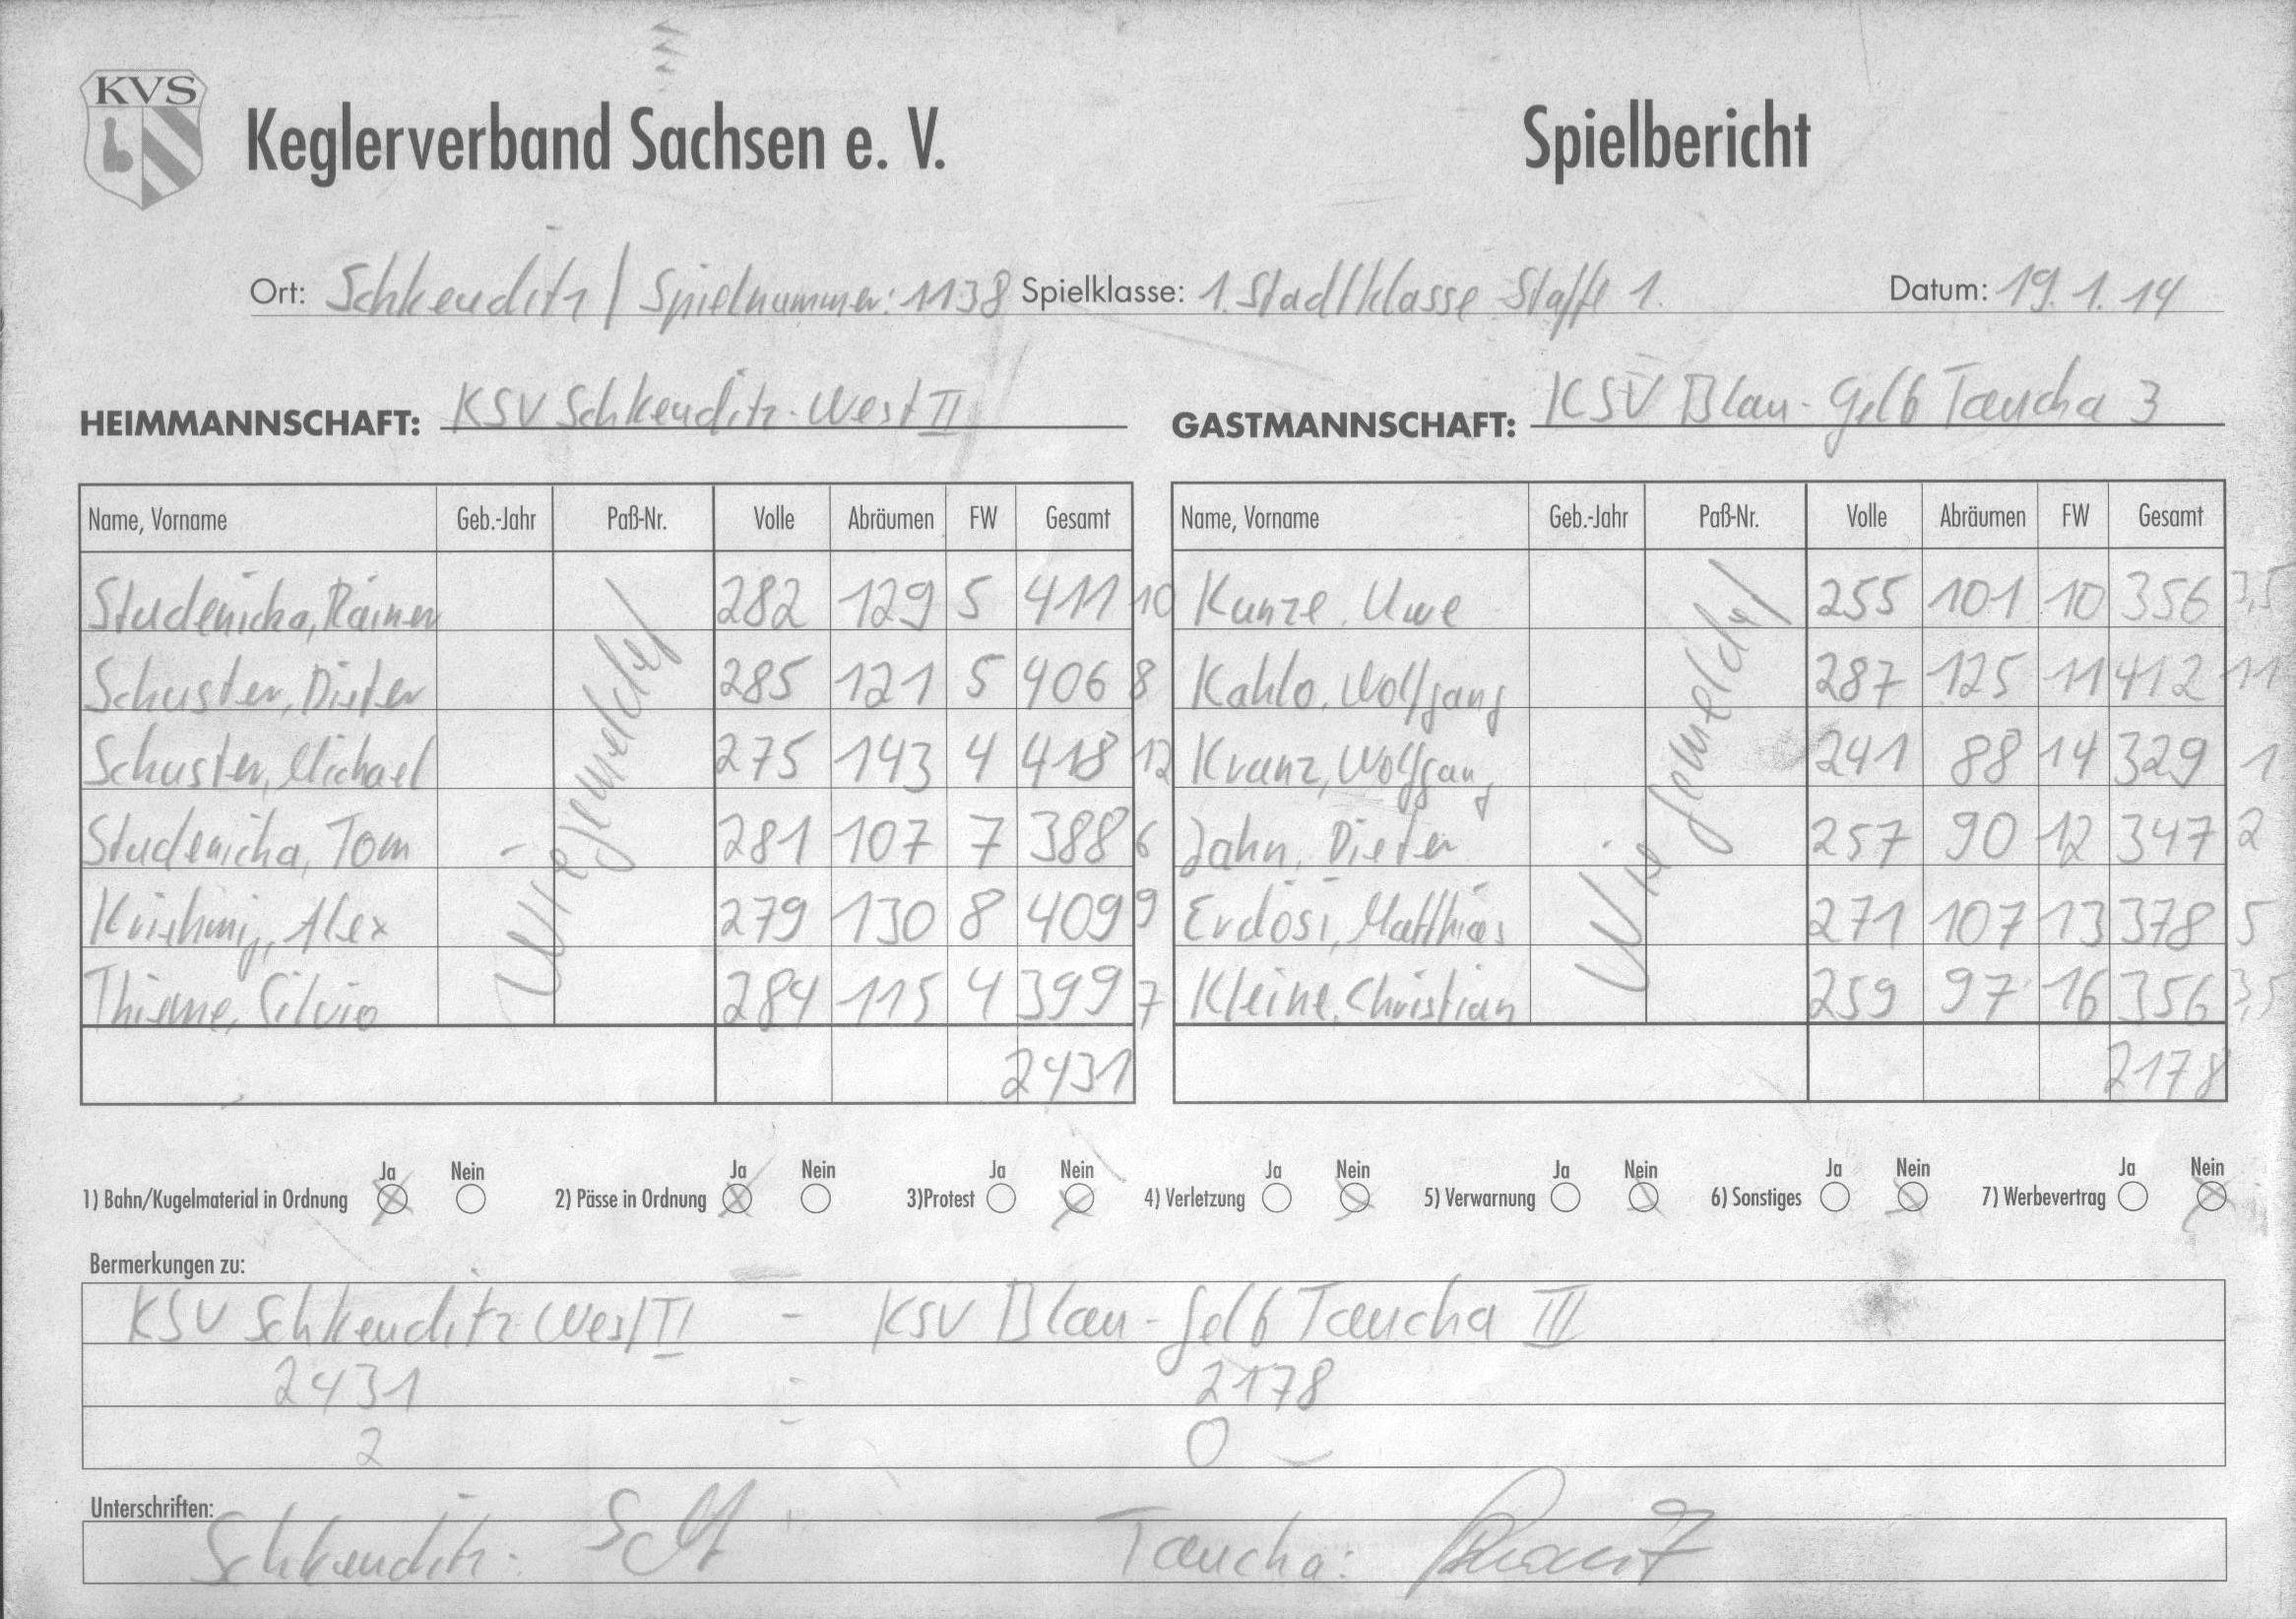 KVS
Keglerverband Sachsen e. V.
Spielbericht
Ort: Schkeuditz / Spielnummer: 1138 Spielklasse: 1. Stadtklasse Staffel 1. Datum: 19. 1. 14
HEIMMANNSCHAFT: KSV Schkeuditz-West II
GASTMANNSCHAFT: KSV Blau-Gelb Taucha 3
Name, Vorname Geb.-Jahr Paß-Nr. Volle Abräumen FW Gesamt
Studenicka, Rainer 282 129 5 411 10
Schuster, Dieter 285 121 5 406 8
Schuster, Michael 275 143 4 418 12
Studenicka, Tom 281 107 7 388 6
Alex 279 130 8 409 9
Thieme, Silvio 284 115 4 399 7
Wie gemeldet
2431
Name, Vorname Geb.-Jahr Paß-Nr. Volle Abräumen FW Gesamt
Kunze, Uwe 255 101 10 356 3,5
Kahlo, Wolfgang 287 125 11 412 11
Kranz, Wolfgang 241 88 14 329 1
Jahn, Dieter 257 90 12 347 2
Erdösi, Matthias 271 107 13 378 5
Kleine, Christian 259 97 16 356 3,5
Wie gemeldet
2178
1) Bahn/Kugelmaterial in Ordnung Ja Nein 2) Pässe in Ordnung Ja Nein 3)Protest Ja Nein 4) Verletzung Ja Nein 5) Verwarnung Ja Nein 6) Sonstiges Ja Nein 7) Werbevertrag Ja Nein
Bermerkungen zu:
KSV Schkeuditz West II - KSV Blau-Gelb Taucha III
2431 : 2178
2 : 0
Unterschriften:
Schkeuditz: Taucha: